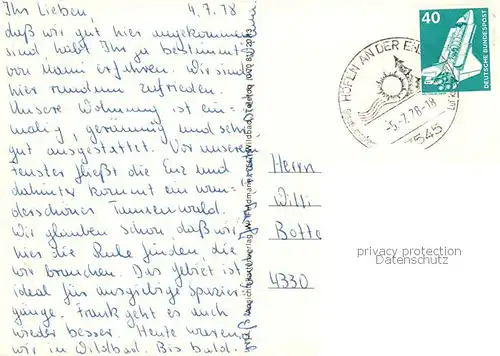 Ihr Lieben, 4.7.78
daß wir gut hier angekommen
sind habt Ihr ja bestimmt
von Mami erfahren. Wir sind
hier rundum zufrieden.
Unsere Wohnung ist ein-
malig, geräumig und sehr
gut ausgestattet. Vor unserem
Fenster fließt die Enz und
dahinter kommt ein wun-
derschöner Tannenwald.
Wir glauben schon daß wir
hier die Ruhe finden, die
wir brauchen. Das Gebiet ist
ideal für ausgiebige Spazier-
gänge. Frank geht es auch
wieder besser. Heute waren
wir in Wildbad. Bis bald.
HÖFEN AN DER ENZ
-5.-7.78-18
7545
40
DEUTSCHE BUNDESPOST
TECHNOLOGIE
Herrn
Willi
Botte
4330
privacy protection
Datenschutz